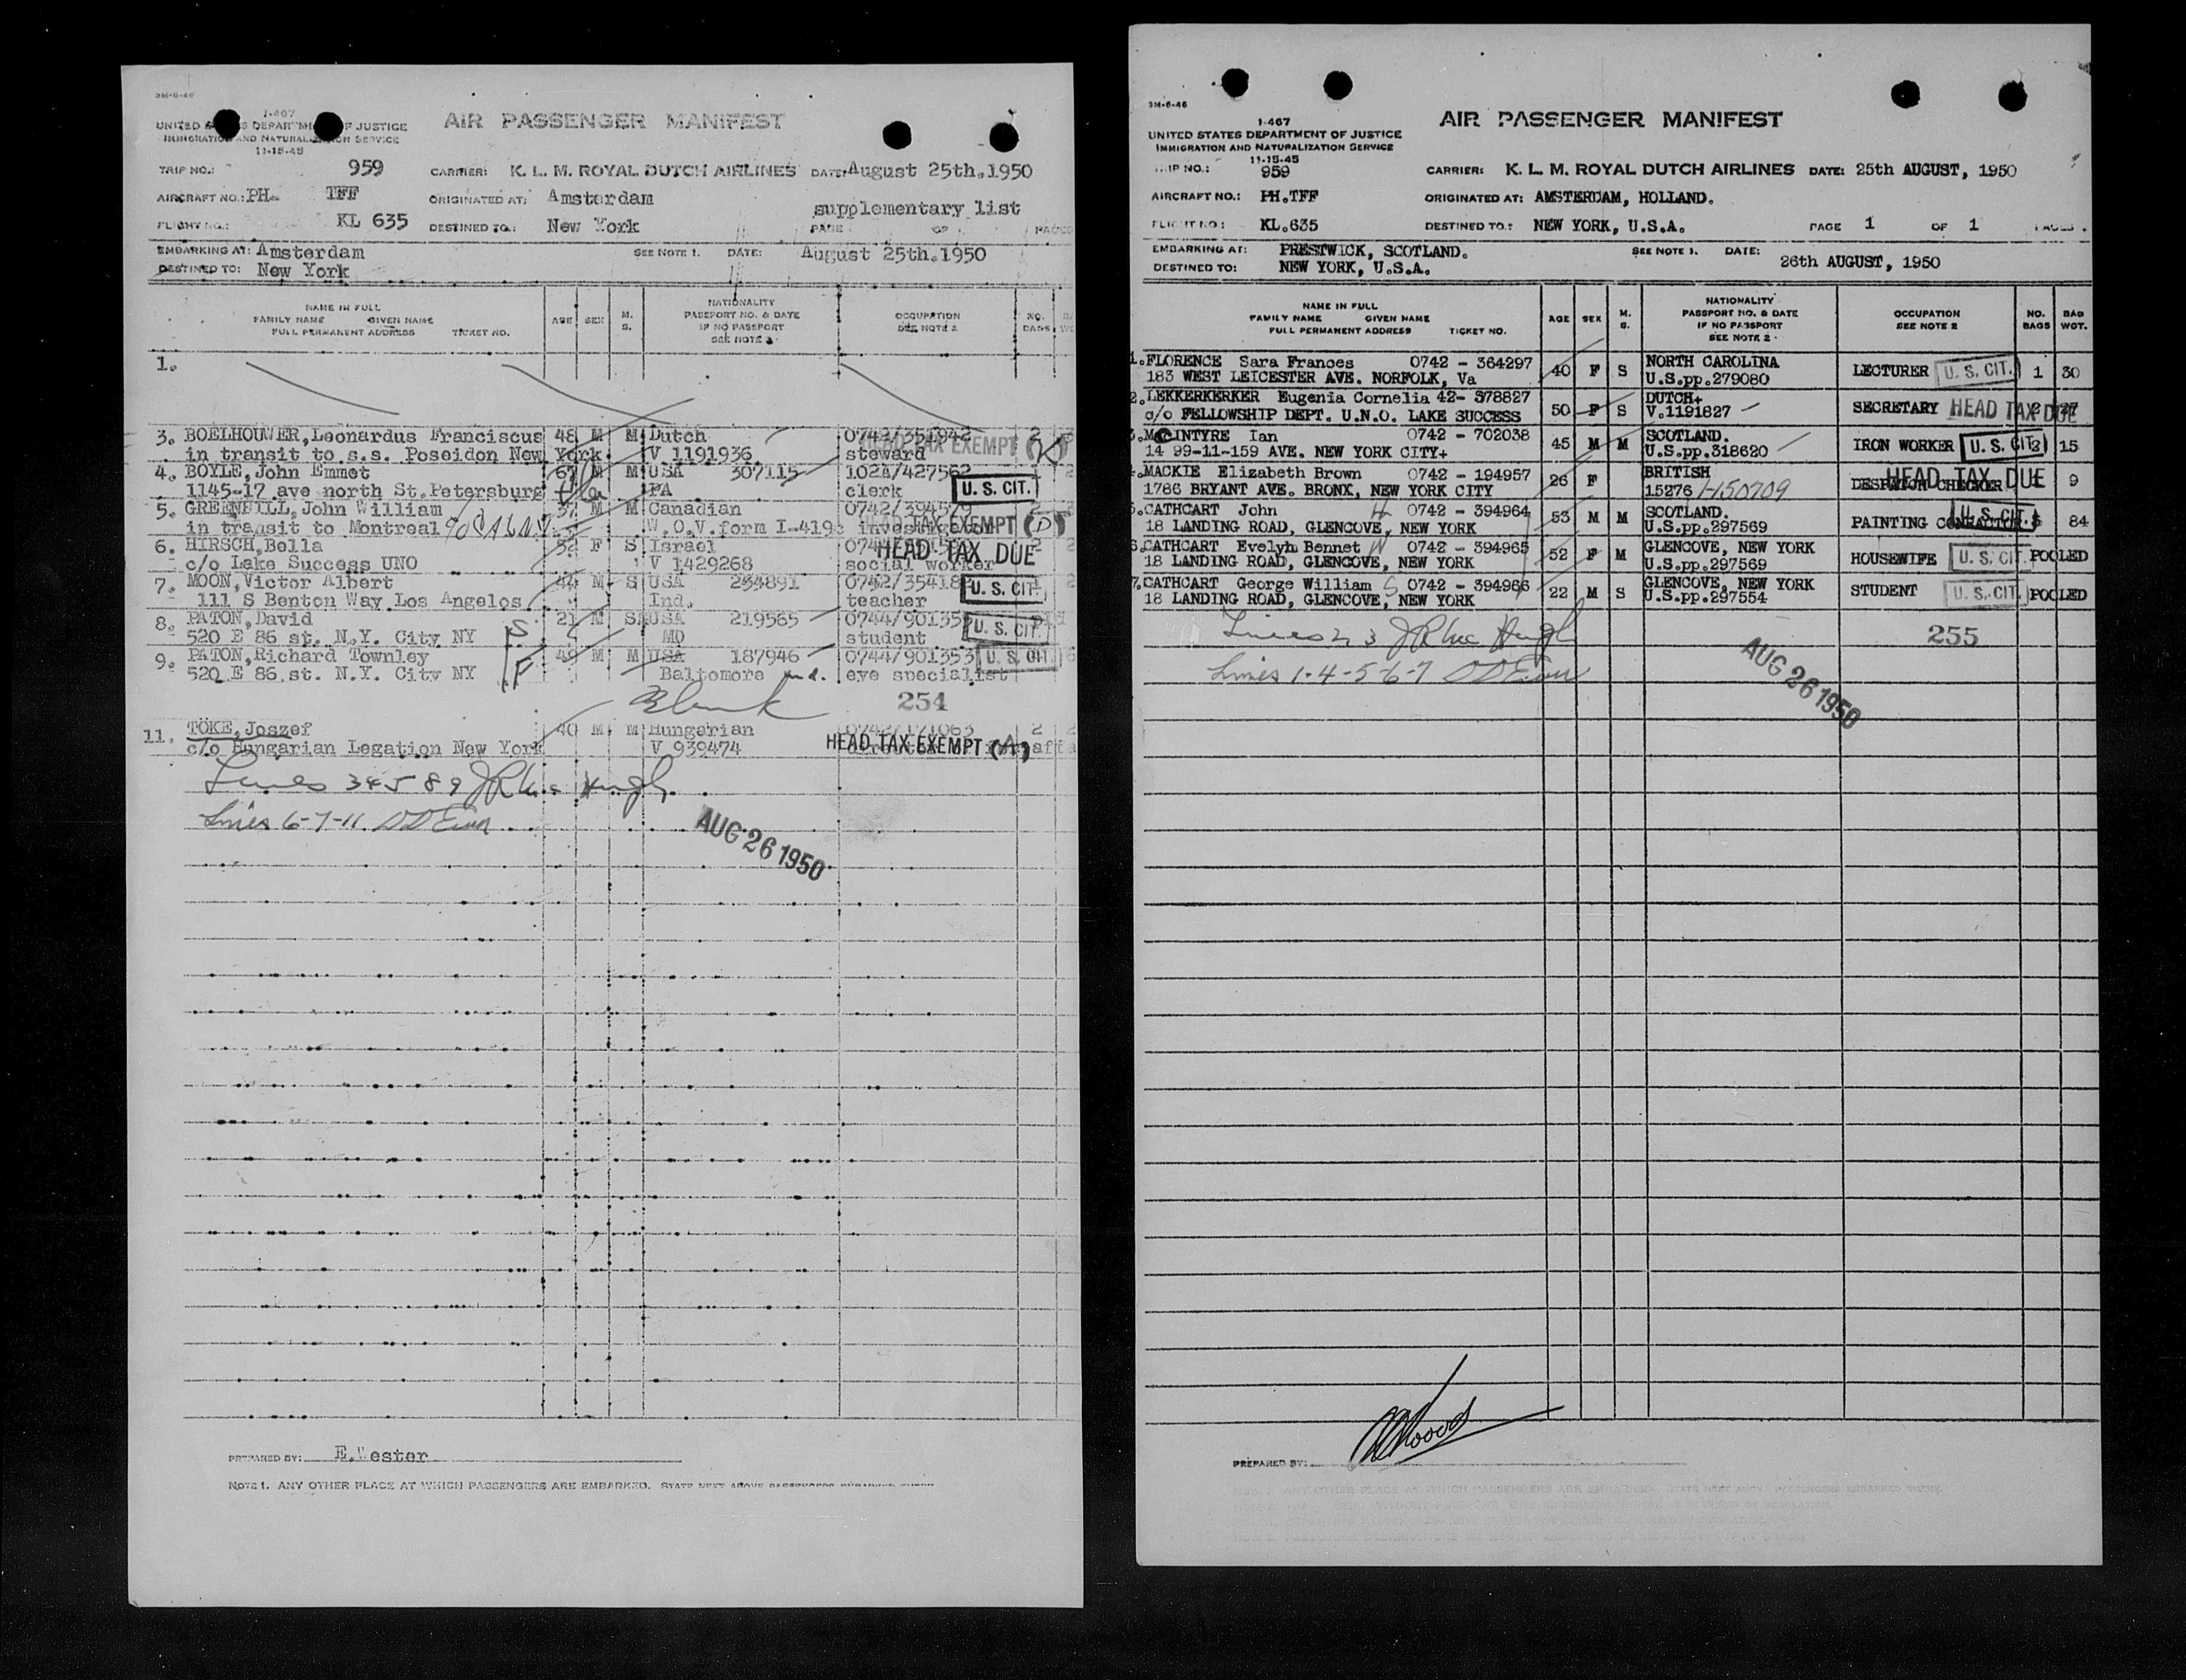 3M-6-46
I-467
UNITED STATES DEPARTMENT OF JUSTICE
IMMIGRATION AND NATURALIZATION SERVICE
11-15-45
AIR PASSENGER MANIFEST
TRIP NO.: 959 CARRIER: K. L. M. ROYAL DUTCH AIRLINES DATE: August 25th.1950
AIRCRAFT NO.: PH. TFF ORIGINATED AT: Amsterdam supplementary list
FLIGHT NO.: KL 635 DESTINED TO: New York PAGE OF PAGES
EMBARKING AT: Amsterdam SEE NOTE 1. DATE: August 25th.1950
DESTINED TO: New York
NAME IN FULL
FAMILY NAME GIVEN NAME
FULL PERMANENT ADDRESS TICKET NO.
AGE SEX M. S.
NATIONALITY
PASSPORT NO. & DATE
IF NO PASSPORT
SEE NOTE 2
OCCUPATION
SEE NOTE 2
NO. BAGS
1.
3. BOELHOUWER,Leonardus Franciscus 48 M M Dutch 0742/351942 2
in transit to s.s. Poseidon New York. V 1191936 steward HEAD TAX EXEMPT (K)
4. BOYLE,John Emmet 67 M M USA 307115 102A/427562 1
1145-17 ave north St.Petersburg Fla PA clerk U. S. CIT.
5. GREENHILL,John William 37 M M Canadian 0742/394579 2
in transit to Montreal W.O.V.form I-419c TAX EXEMPT (D)
6. HIRSCH,Bella 52 F S Israel HEAD TAX DUE 2
c/o Lake Success UNO V 1429268 social worker
7. MOON,Victor Albert 44 M S USA 234891 0742/354187 1
111 S Benton Way Los Angelos Ind. teacher U. S. CIT.
8. PATON,David S 21 M S USA 219565 0744/901352
520 E 86 st. N.Y. City NY MD student U. S. CIT.
9. PATON,Richard Townley F 49 M M USA 187946 0744/901353 U. S. CIT.
520 E 86 st. N.Y. City NY Baltomore Md. eye specialist
Blank 254
11. TÖKE,Joszef 40 M M Hungarian 0742/171063 2
c/o Hungarian Legation New York V 939474 HEAD TAX EXEMPT (A)
Lines 3 4 5 8 9
Lines 6-7-11
AUG 26 1950
PREPARED BY: E.Wester
NOTE 1. ANY OTHER PLACE AT WHICH PASSENGERS ARE EMBARKED. STATE NEXT ABOVE PASSENGERS EMBARKED THERE
3M-6-46
I-467
UNITED STATES DEPARTMENT OF JUSTICE
IMMIGRATION AND NATURALIZATION SERVICE
11-15-45
AIR PASSENGER MANIFEST
TRIP NO.: 959 CARRIER: K. L. M. ROYAL DUTCH AIRLINES DATE: 25th AUGUST, 1950
AIRCRAFT NO.: PH.TFF ORIGINATED AT: AMSTERDAM, HOLLAND.
FLIGHT NO: KL.635 DESTINED TO.: NEW YORK, U.S.A. PAGE 1 OF 1 PAGES
EMBARKING AT: PRESTWICK, SCOTLAND. SEE NOTE 1. DATE: 26th AUGUST, 1950
DESTINED TO: NEW YORK, U.S.A.
NAME IN FULL
FAMILY NAME GIVEN NAME
FULL PERMANENT ADDRESS TICKET NO.
AGE SEX M. S.
NATIONALITY
PASSPORT NO. & DATE
IF NO PASSPORT
SEE NOTE 2
OCCUPATION
SEE NOTE 2
NO. BAGS BAG WGT.
1. FLORENCE Sara Frances 0742 - 364297 40 F S NORTH CAROLINA LECTURER U. S. CIT. 1 30
183 WEST LEICESTER AVE. NORFOLK, Va U.S.pp.279080
2. LEKKERKERKER Eugenia Cornelia 42- 378827 50 F S DUTCH+ SECRETARY HEAD TAX DUE 2 27
c/o FELLOWSHIP DEPT. U.N.O. LAKE SUCCESS V.1191827
3. McINTYRE Ian 0742 - 702038 45 M M SCOTLAND. IRON WORKER U. S. CIT. 2 15
14 99-11-159 AVE. NEW YORK CITY+ U.S.pp.318620
4. MACKIE Elizabeth Brown 0742 - 194957 26 F BRITISH DESPATCH CHECKER HEAD TAX DUE 9
1786 BRYANT AVE. BRONX, NEW YORK CITY 15276 1-150709
5. CATHCART John H 0742 - 394964 53 M M SCOTLAND. PAINTING CONTRACTOR U. S. CIT. 84
18 LANDING ROAD, GLENCOVE, NEW YORK U.S.pp.297569
6. CATHCART Evelyn Bennet W 0742 - 394965 52 F M GLENCOVE, NEW YORK HOUSEWIFE U. S. CIT. POOLED
18 LANDING ROAD, GLENCOVE, NEW YORK U.S.pp.297569
7. CATHCART George William S 0742 - 394966 22 M S GLENCOVE, NEW YORK STUDENT U. S. CIT. POOLED
18 LANDING ROAD, GLENCOVE, NEW YORK U.S.pp.297554
Lines 2 3 255
Lines 1-4-5-6-7
AUG 26 1950
PREPARED BY: